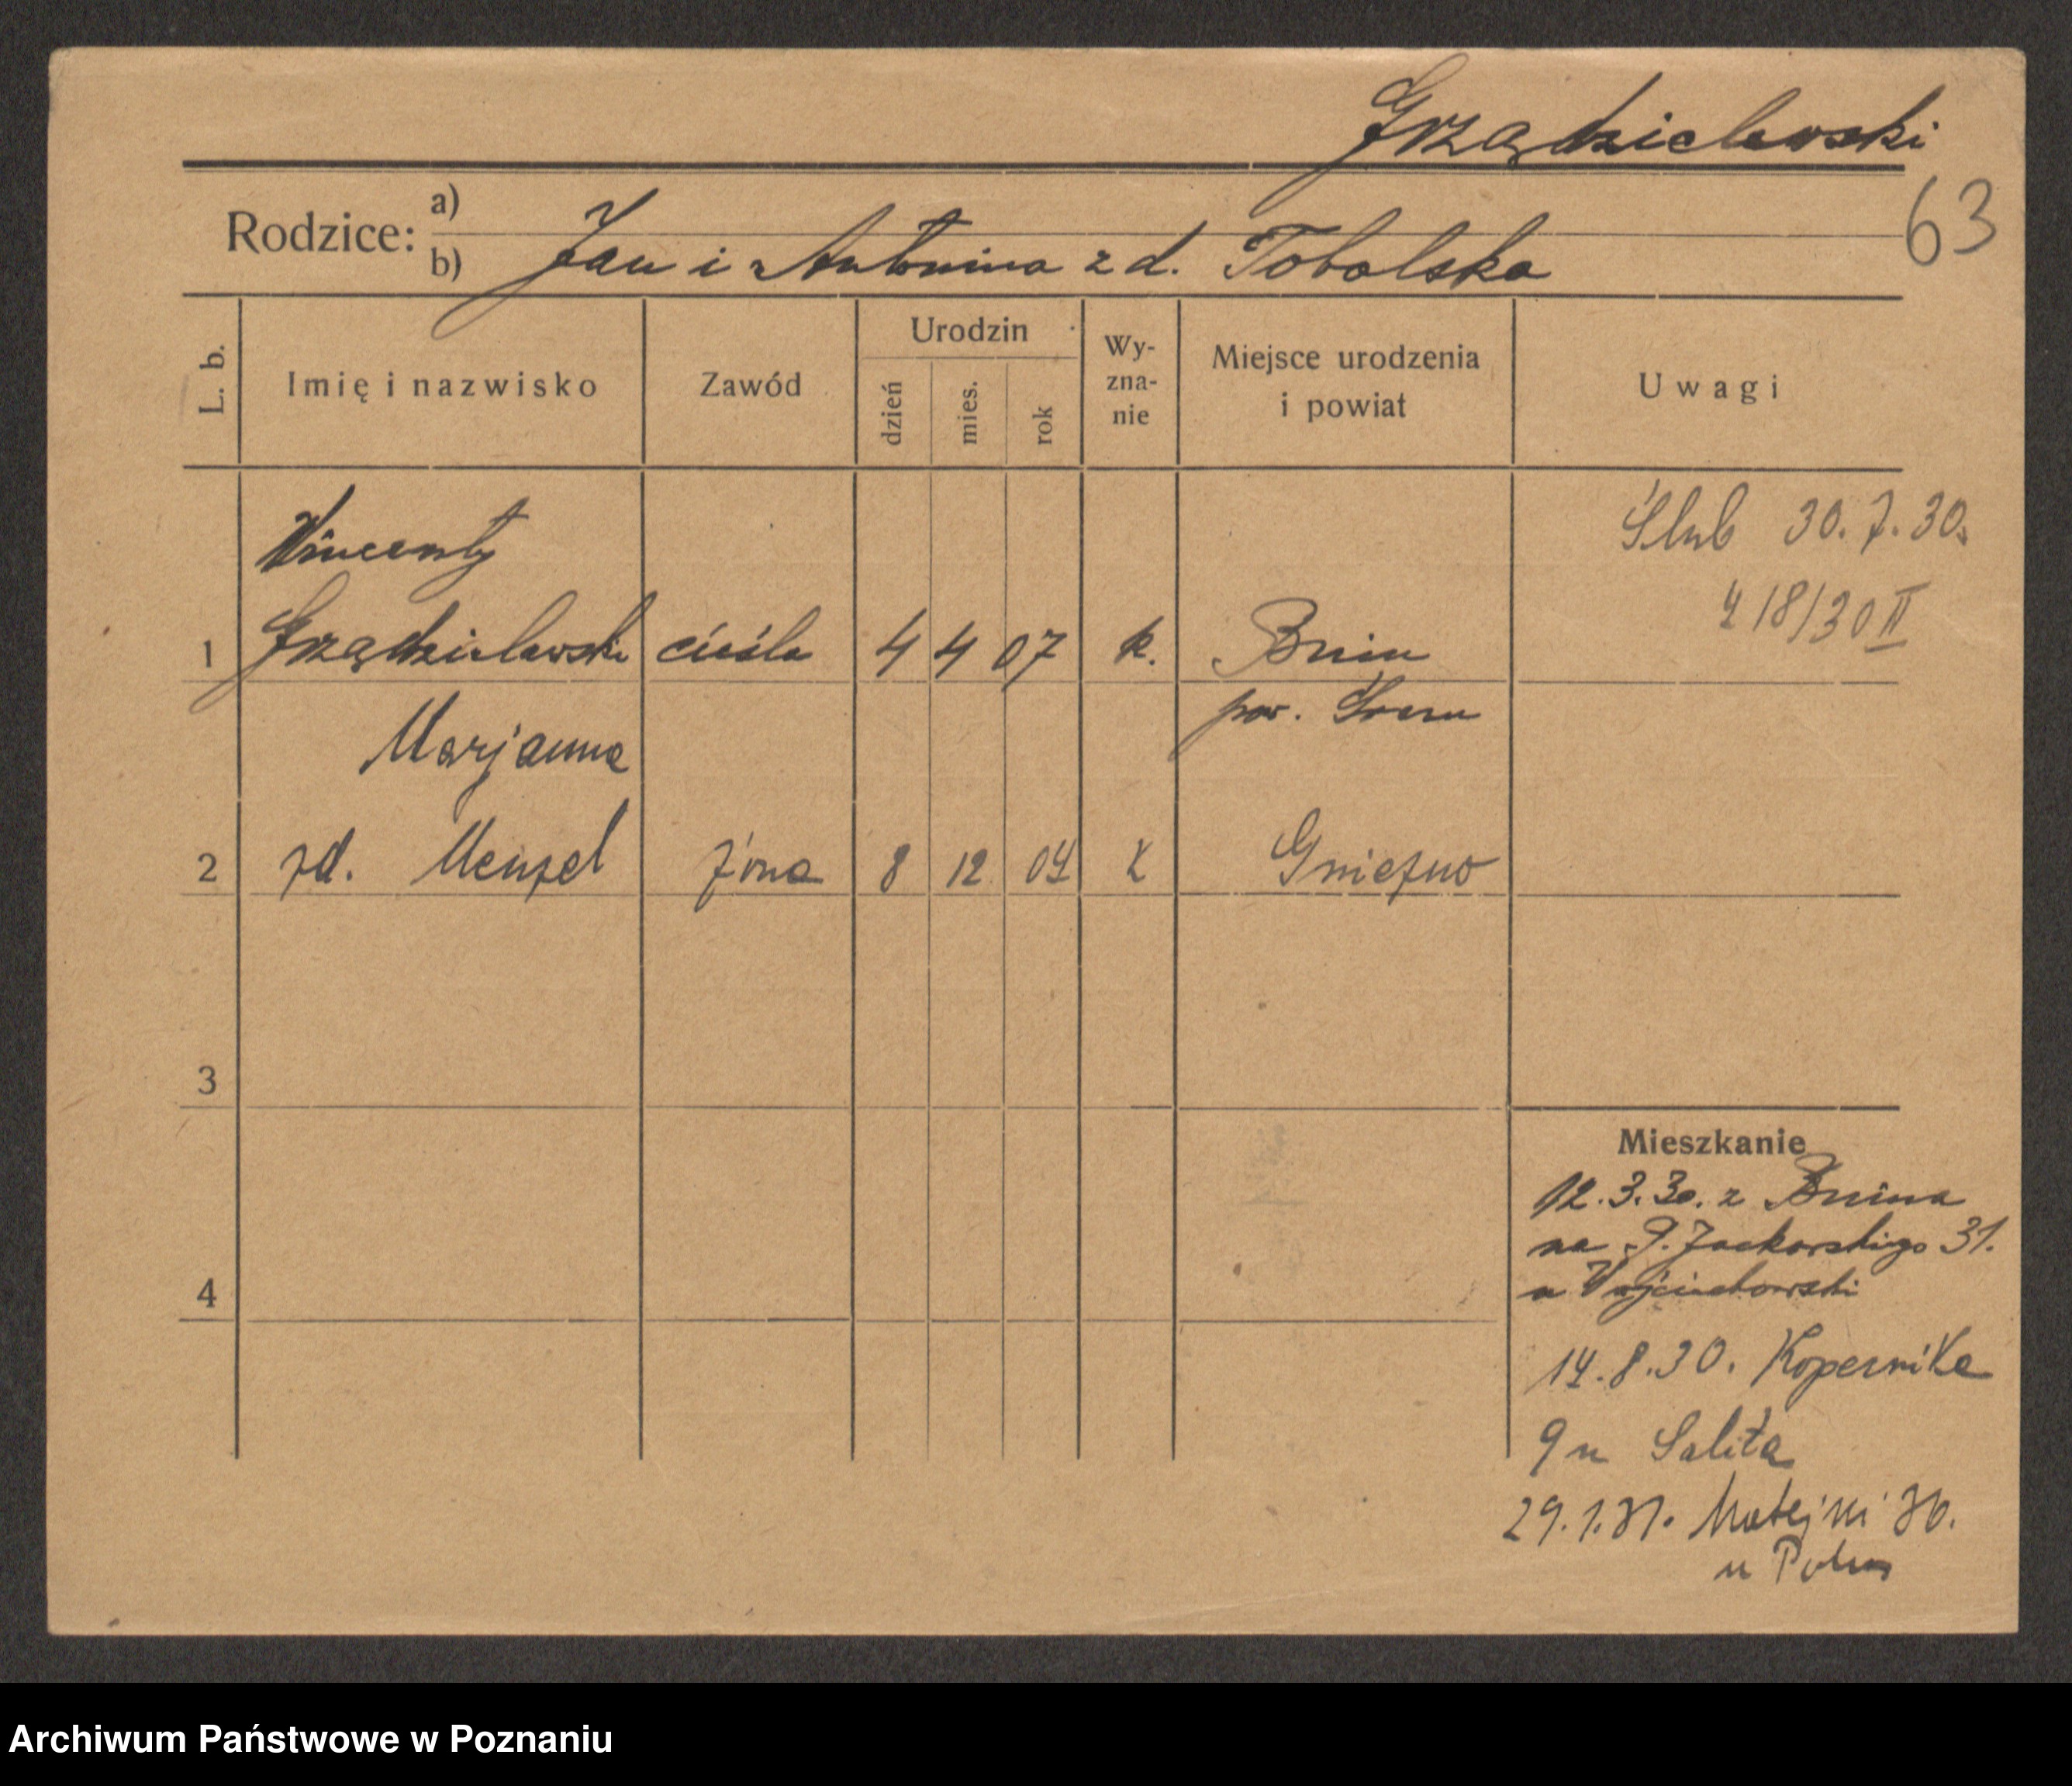 Grządzielewski
63
Rodzice: a)
b) Jan i Antonina z d. Tobolska
L. b.
Imię i nazwisko
Zawód
Urodzin
dzień
mies.
rok
Wy-
zna-
nie
Miejsce urodzenia
i powiat
Uwagi
Wincenty
1 Grządzielewski cieśla 4 4 07 k. Bnin
pow. Śrem
Ślub 30.7.30.
18/30 II
Marjanna
2 zd. Menzel żona 8 12 04 k Gniezno
3
4
Mieszkanie
12.3.30. z Bnina
na P. Jackowskiego 31.
u Wojciechowski
14.8.30. Kopernika
9 u Salita
29.1.31. Matejki 36.
u
Archiwum Państwowe w Poznaniu